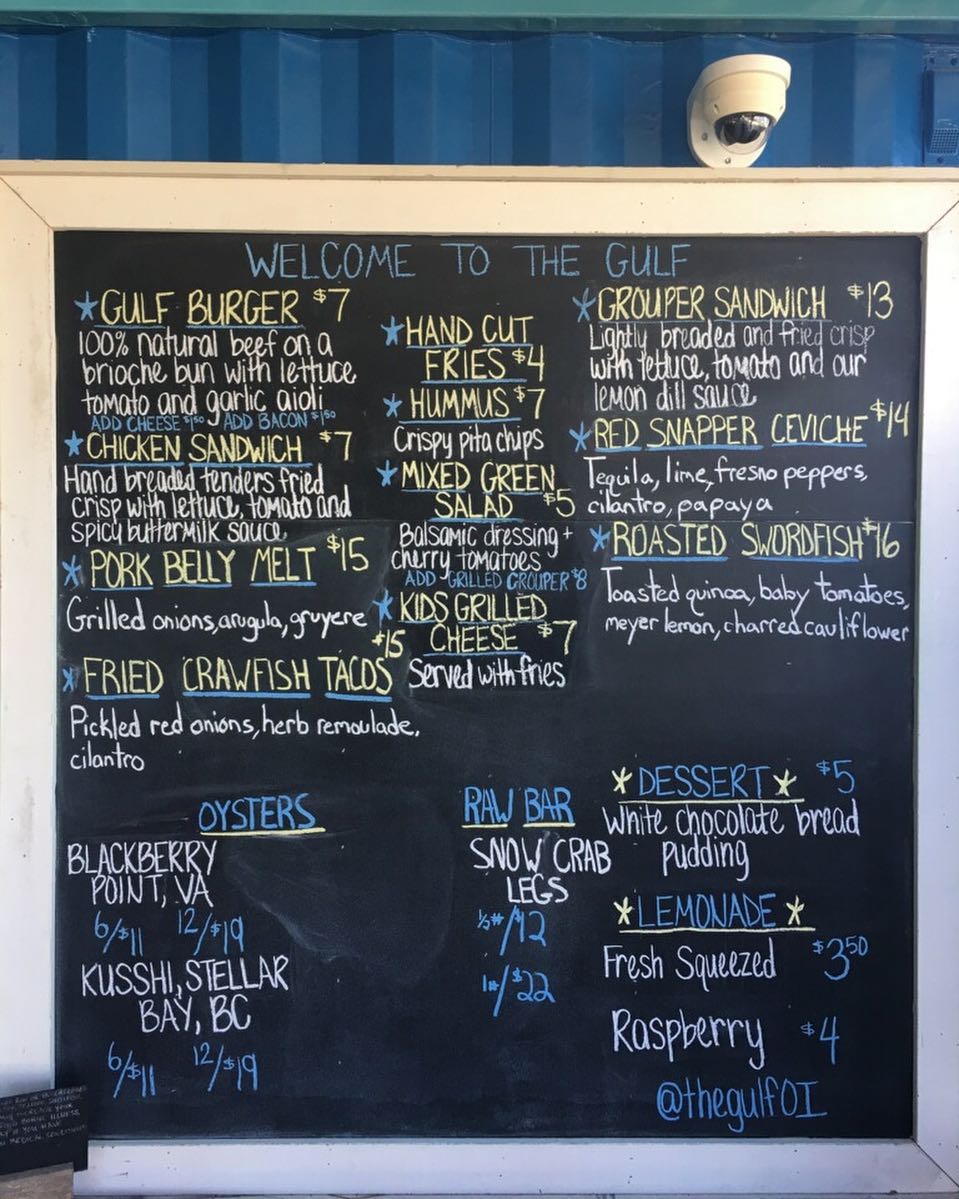 WELCOME TO THE GULF
GULF BURGER $7
100% natural beef on a
brioche bun with lettuce
tomato and garlic aioli
ADD CHEESE $1.50 ADD BACON $1.50
CHICKEN SANDWICH $7
Hand breaded tenders fried
crisp with lettuce, tomato and
spicy buttermilk sauce
PORK BELLY MELT $15
Grilled onions, arugula, gruyere
$15
FRIED CRAWFISH TACOS
Pickled red onions, herb remoulade,
cilantro
HAND CUT
FRIES $4
HUMMUS $7
Crispy pita chips
MIXED GREEN
SALAD $5
Balsamic dressing +
cherry tomatoes
ADD GRILLED GROUPER $8
KIDS GRILLED
CHEESE $7
Served with fries
GROUPER SANDWICH $13
Lightly breaded and fried crisp
with lettuce, tomato and our
lemon dill sauce
RED SNAPPER CEVICHE $14
Tequila, lime, fresno peppers,
cilantro, papaya
ROASTED SWORDFISH $16
Toasted quinoa, baby tomatoes,
meyer lemon, charred cauliflower
OYSTERS
BLACKBERRY
POINT, VA
6/$11 12/$19
KUSSHI, STELLAR
BAY, BC
6/$11 12/$19
RAW BAR
SNOW CRAB
LEGS
½#/$12
1#/$22
DESSERT $5
White chocolate bread
pudding
LEMONADE
Fresh Squeezed $3.50
Raspberry $4
@thegulfOI